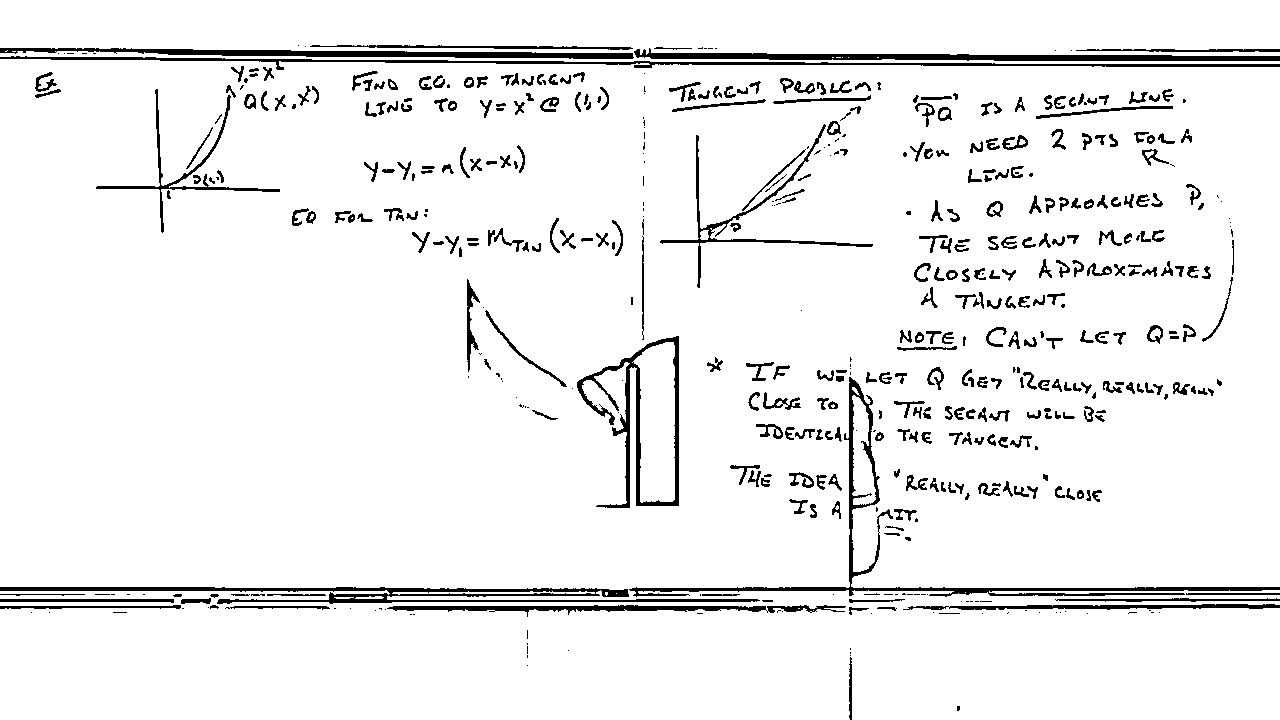 Ex
Y=X²
Q(X,X²)
P(1,1)
1
FIND EQ. OF TANGENT
LINE TO Y=X² @ (1,1)
Y-Y₁=m(X-X₁)
EQ FOR TAN:
Y-Y₁=M_TAN(X-X₁)
TANGENT PROBLEM:
Q
P
"PQ" IS A SECANT LINE.
·YOU NEED 2 PTS FOR A
LINE.
· AS Q APPROACHES P,
THE SECANT MORE
CLOSELY APPROXIMATES
A TANGENT.
NOTE: CAN'T LET Q=P
* IF WE LET Q GET "REALLY, REALLY, REALLY"
CLOSE TO , THE SECANT WILL BE
IDENTICAL TO THE TANGENT.
THE IDEA "REALLY, REALLY" CLOSE
IS A